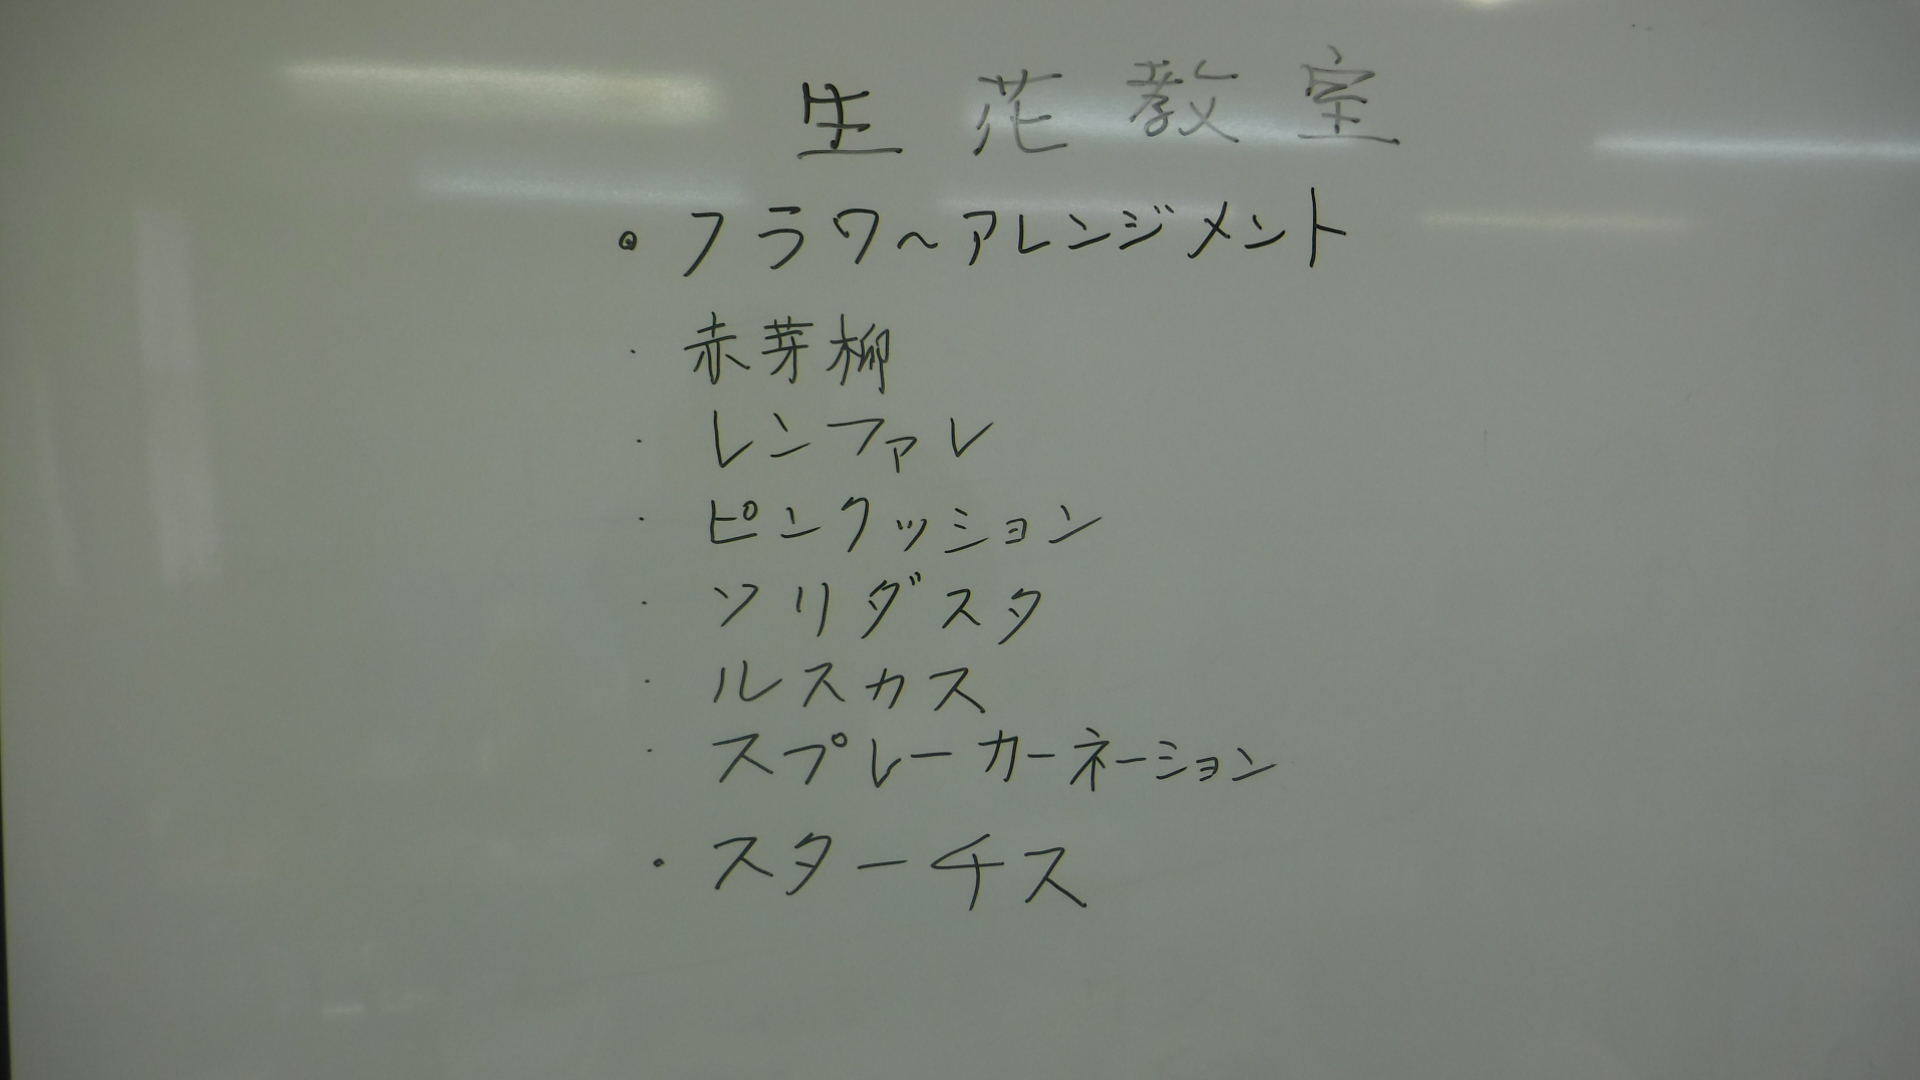 生花教室
・フラワ～アレンジメント
・赤芽柳
・レンファレ
・ピンクッション
・ソリダスタ
・ルスカス
・スプレーカーネーション
・スターチス